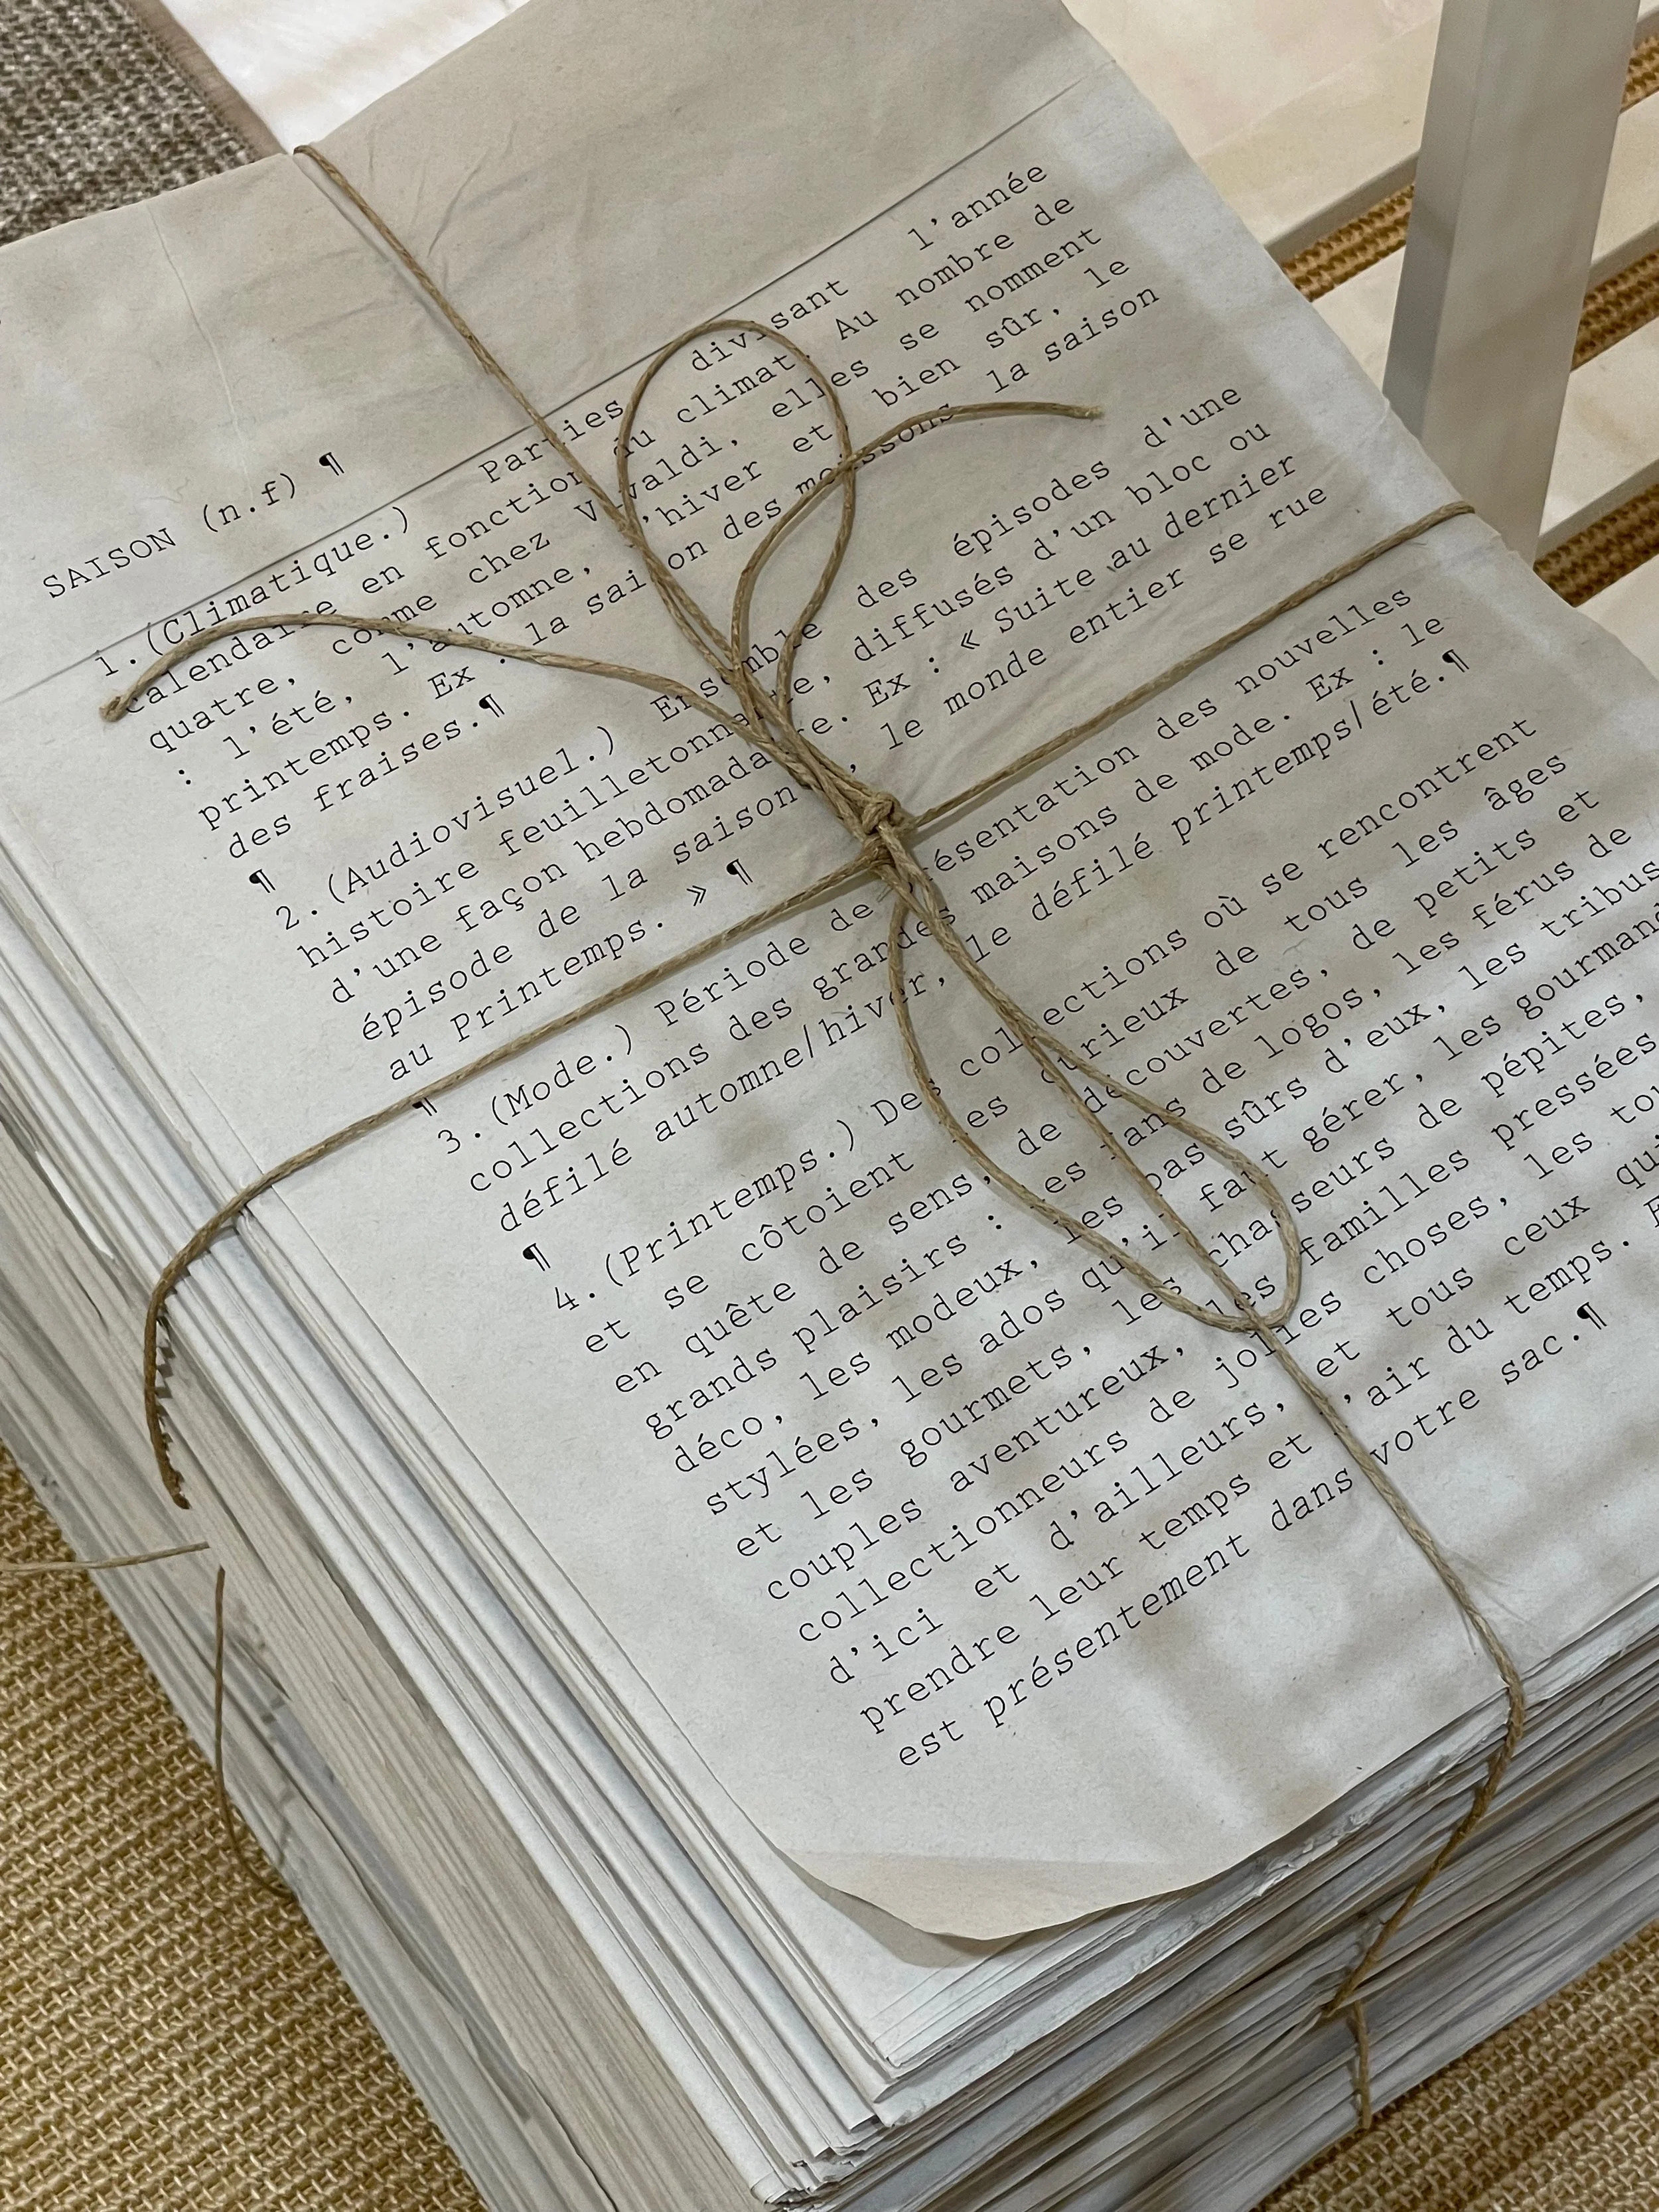 SAISON (n.f) ¶
1.(Climatique.) Parties divisant l'année
calendaire en fonction du climat. Au nombre de
quatre, comme chez Vivaldi, elles se nomment
: l'été, l'automne, l'hiver et bien sûr, le
printemps. Ex : la saison des moissons la saison
des fraises.¶
¶
2.(Audiovisuel.) Ensemble des épisodes d'une
histoire feuilletonnante, diffusés d'un bloc ou
d'une façon hebdomadaire. Ex : « Suite au dernier
épisode de la saison, le monde entier se rue
au Printemps. » ¶
¶
3.(Mode.) Période de présentation des nouvelles
collections des grandes maisons de mode. Ex : le
défilé automne/hiver, le défilé printemps/été.¶
¶
4.(Printemps.) Des collections où se rencontrent
et se côtoient les curieux de tous les âges
en quête de sens, de découvertes, de petits et
grands plaisirs : les fans de logos, les férus de
déco, les modeux, les pas sûrs d'eux, les tribus
stylées, les ados qu'il faut gérer, les gourmands
et les gourmets, les chasseurs de pépites,
couples aventureux, les familles pressées
collectionneurs de jolies choses, les
d'ici et d'ailleurs, et tous ceux qui
prendre leur temps et l'air du temps.
est présentement dans votre sac.¶